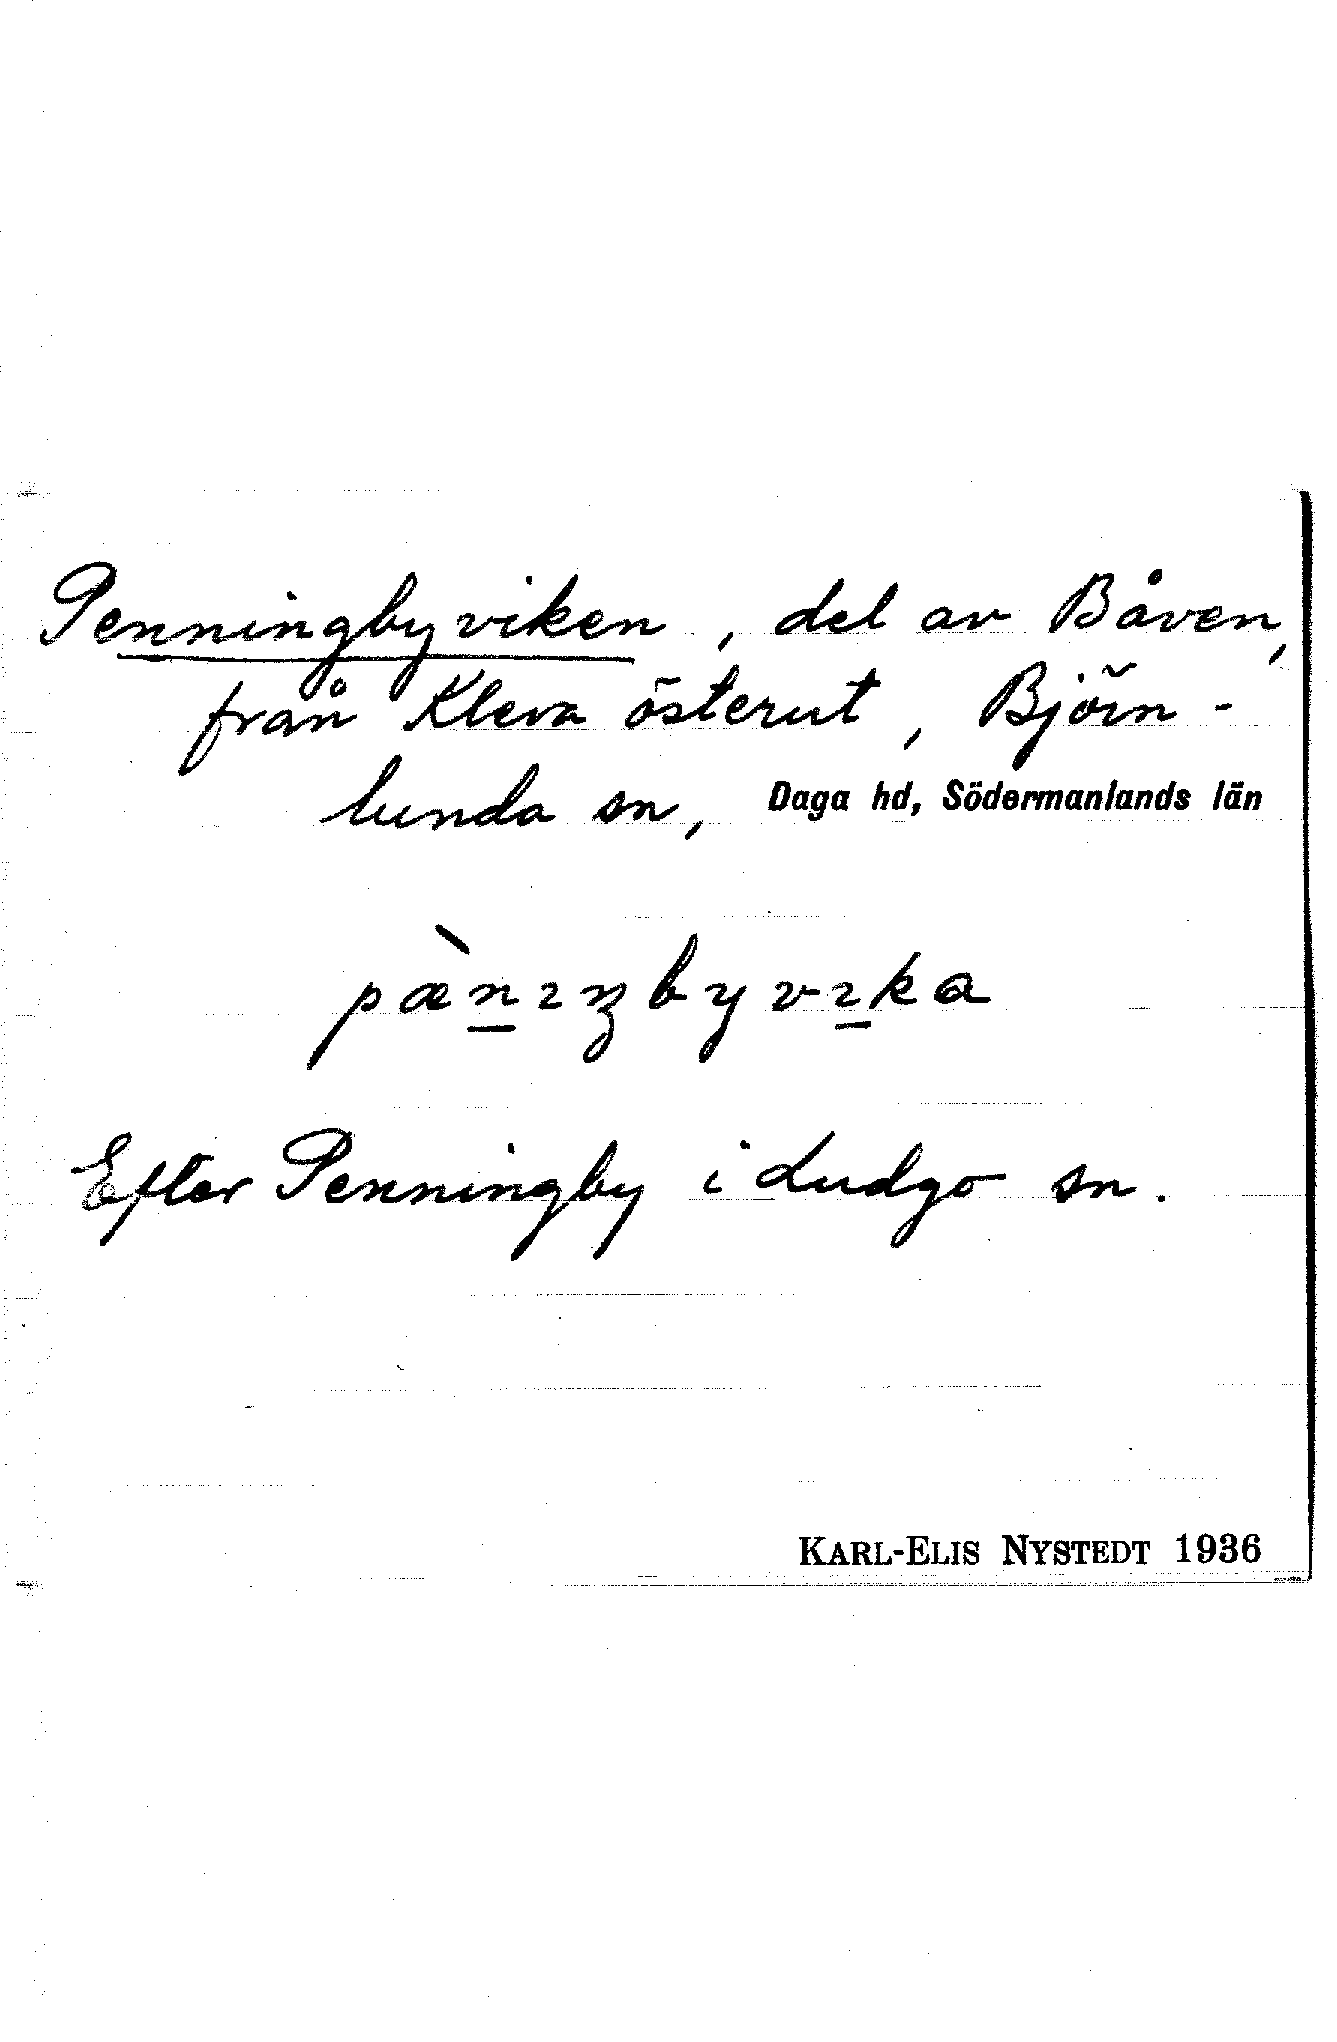 Penningbyviken, del av Båven,
från Kleva österut, Björn-
lunda sn, Daga hd, Södermanlands län
pæ̀n̲ıŋbyvı̲ka
Efter Penningby i Ludgo sn.
KARL-ELIS NYSTEDT 1936